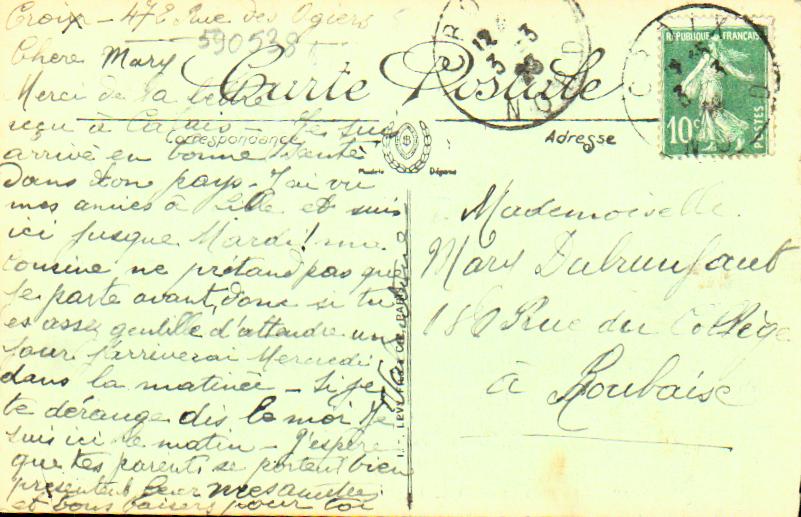 Croix - 47E Rue des Ogiers
590528
Chere Mary
Carte Postale
Merci de ta lettre
reçu à Calais - Je suis
Correspondance
Adresse
arrivé en bonne santé
dans ton pays - J'ai vu
mes amies à Lille et suis
ici jusque Mardi! ma
cousine ne prétand pas que
je parte avant, donc si tu
es assez gentille d'attendre un
jour j'arriverai Mercredi
dans la matinée - Si je
te dérange dis le moi Je
suis ici le matin - J'espère
que tes parents se portent bien
présentent leur mes amitiés
et bons baisers pour toi
Modèle Déposé
PARIS
Mademoiselle
Mary Dubrunfaut
180 Rue du Collège
à Roubaix
REPUBLIQUE FRANÇAISE
10c
POSTES
CROIX
NORD
12
3 - 3